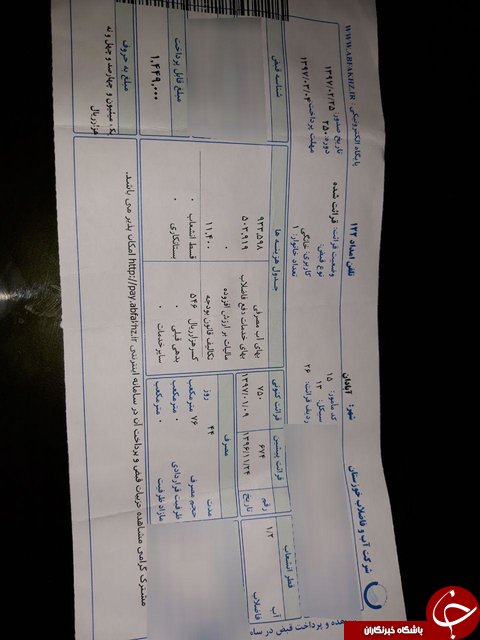 شرکت آب و فاضلاب خوزستان
شهر: آبادان
تلفن امداد ۱۲۲
پایگاه الکترونیکی: WWW.ABFAKHZ.IR
کد مأمور: ۱۵
سیکل: ۱۳
ردیف قرائت: ۲۶
وضعیت قرائت: قرائت شده
نوع قبض:
کاربری: خانگی
تعداد خانوار: ۱
تاریخ صدور: ۱۳۹۷/۰۲/۲۵
دوره: ۲۵۰
مهلت پرداخت: ۱۳۹۷/۰۳/۰۴
قطر انشعاب
آب ۱/۲
فاضلاب
رقم
تاریخ
قرائت پیشین
۶۷۴
۱۳۹۶/۱۱/۲۴
قرائت کنونی
۷۵۰
۱۳۹۷/۰۱/۰۹
مصرف
مدت ۴۴ روز
حجم مصرف ۷۶ مترمکعب
ظرفیت قراردادی ۰ مترمکعب
مازاد ظرفیت ۰ مترمکعب
جدول هزینه ها
بهای آب مصرفی ۹۳۳,۵۹۸
بهای خدمات دفع فاضلاب ۵۰۳,۹۱۹
مالیات بر ارزش افزوده ۰
تکالیف قانون بودجه ۱۱,۴۰۰
کسر هزار ریال ۵۴۶
قسط انشعاب ۰
بدهی قبلی
بستانکاری ۰
سایر خدمات ۰
شناسه قبض
مبلغ قابل پرداخت
۱,۴۴۹,۰۰۰
مبلغ به حروف
یک میلیون و چهارصد و چهل و نه هزار ریال
مشترک گرامی مشاهده جزییات قبض و پرداخت آن در سامانه اینترنتی http://pay.abfakhz.ir امکان پذیر می باشد.
و پرداخت قبض در
باشگاه خبرنگاران